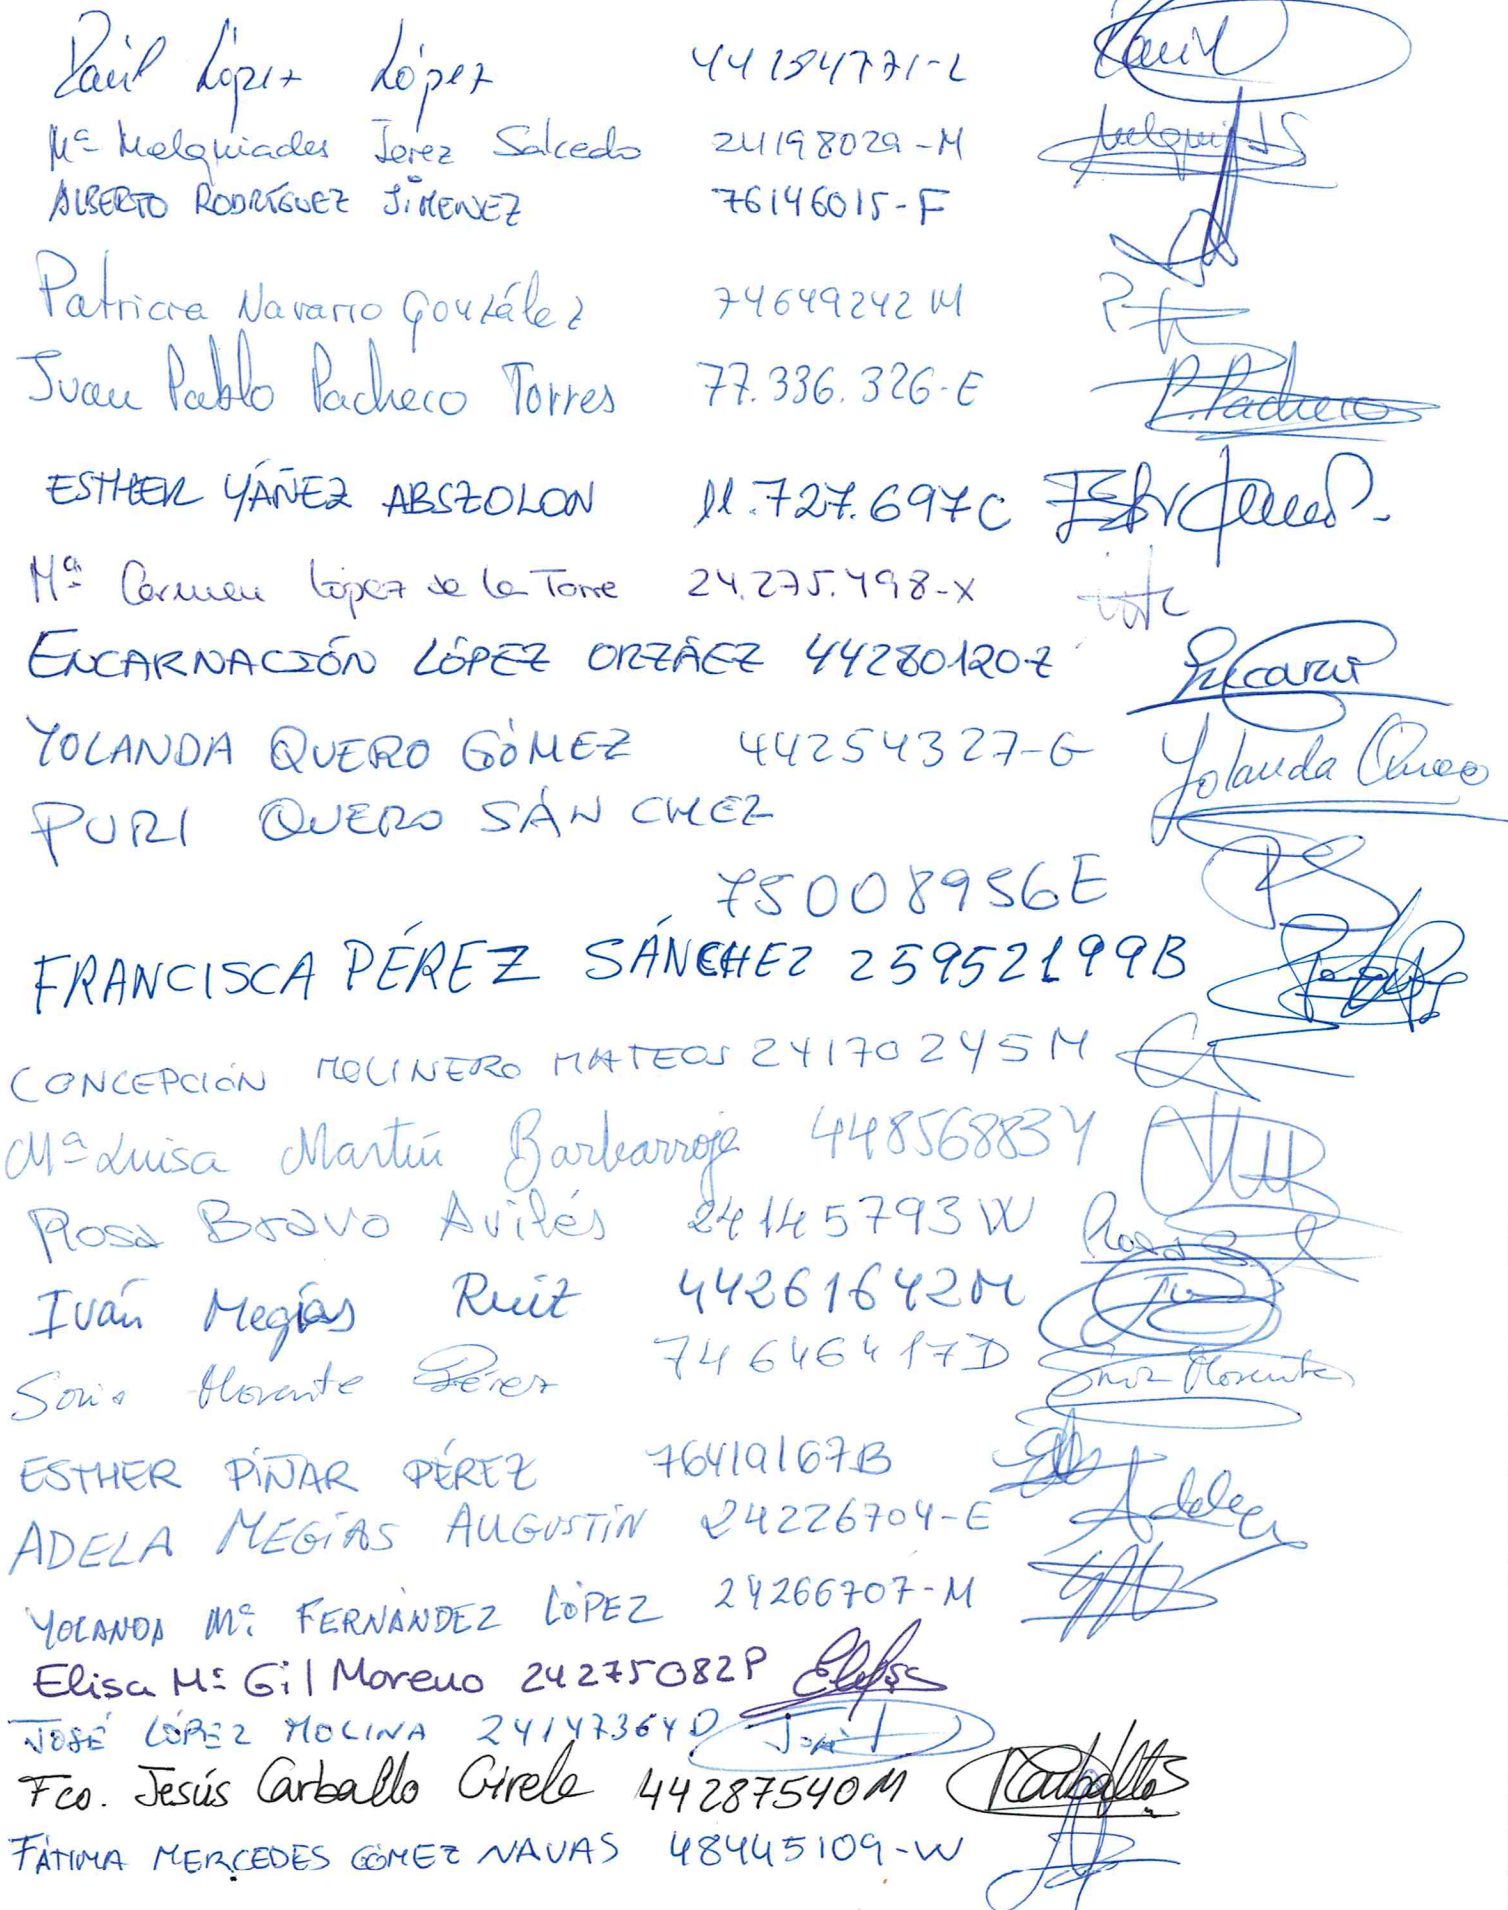 Raúl López López 44284771-L Raúl
Mª Melquiades Jerez Salcedo 24198029-M Melquiades
ALBERTO RODRÍGUEZ JIMENEZ 76146015-F
Patricia Navarro González 74649242 M
Juan Pablo Pacheco Torres 77.336.326-E P. Pacheco
ESTHER YÁÑEZ ABSZOLON 11.727.697C
Mª Carmen López de la Torre 24.275.498-X
ENCARNACIÓN LÓPEZ ORZÁEZ 44280120Z Encarni
YOLANDA QUERO GÓMEZ 44254327-G Yolanda Quero
PURI QUERO SÁNCHEZ
75008956E
FRANCISCA PÉREZ SÁNCHEZ 25952199B
CONCEPCIÓN MOLINERO MATEOS 24170245M
Mª Luisa Martín Barbarroja 44856883Y
Rosa Bravo Avilés 24145793W Rosa
Iván Megías Ruiz 44261642M
Sonia Morente Pérez 74646417D Sonia Morente
ESTHER PIÑAR PÉREZ 76419167B
ADELA MEGÍAS AUGUSTÍN 24226704-E Adela
YOLANDA Mª FERNÁNDEZ LÓPEZ 24266707-M
Elisa Mª Gil Moreno 24275082P Elisa
JOSÉ LÓPEZ MOLINA 24147364D José
Fco. Jesús Carballo Cirela 44287540M Carballo
FÁTIMA MERCEDES GÓMEZ NAVAS 48445109-W